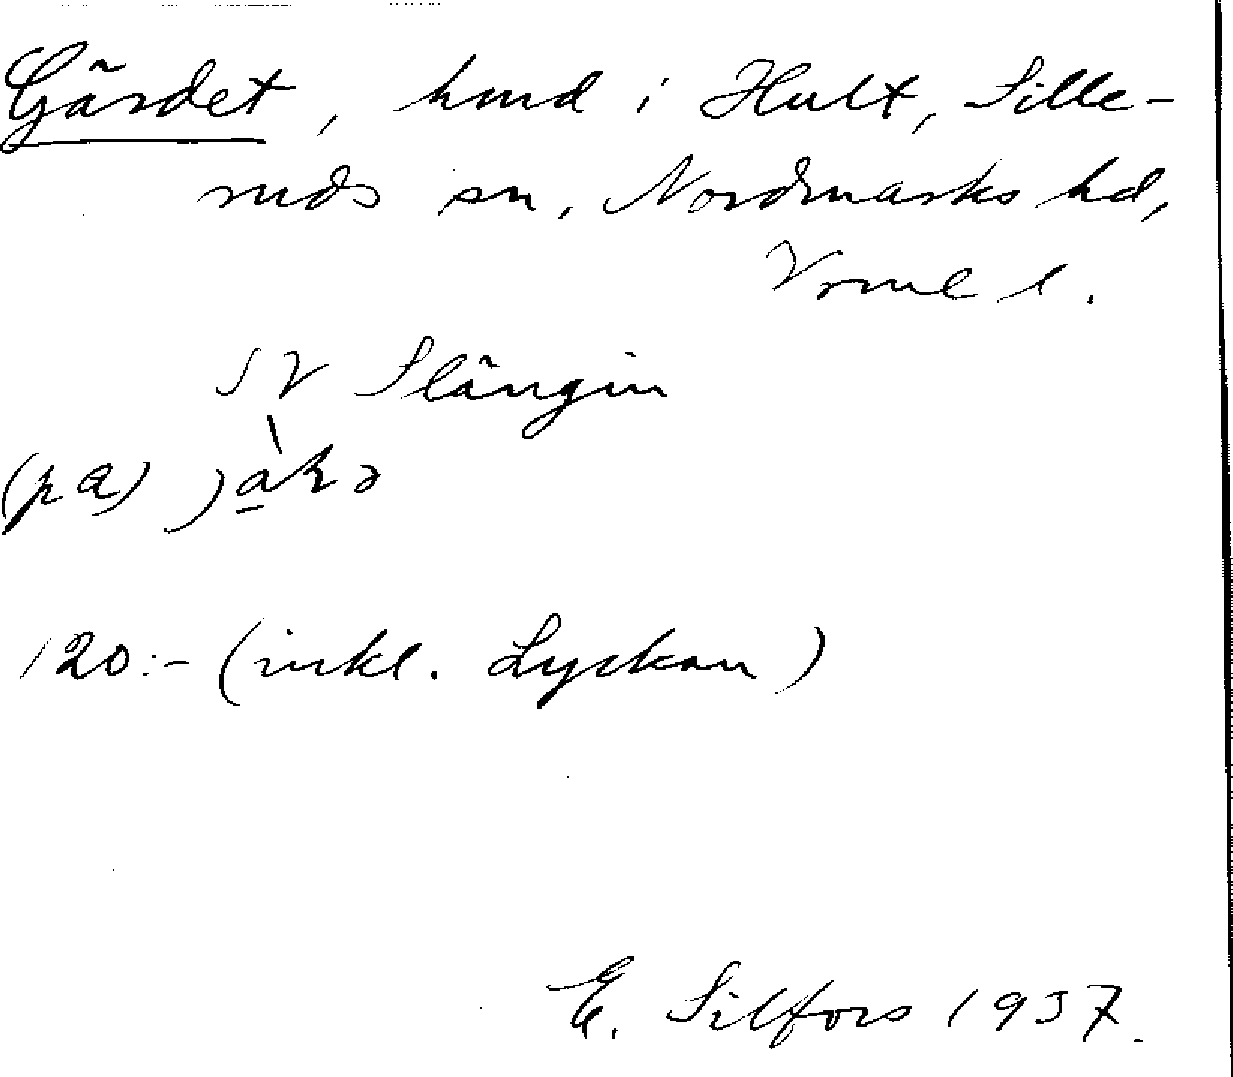 Gärdet, hmd i Hult, Sille-
ruds sn, Nordmarks hd,
Vrml l.
SV Slängin
(på)
120:- (inkl. Lyckan)
E. Silfors 1937.